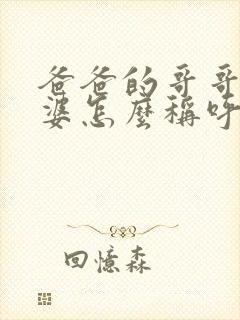 爸爸的哥哥
婆怎麼稱呼
回憶森